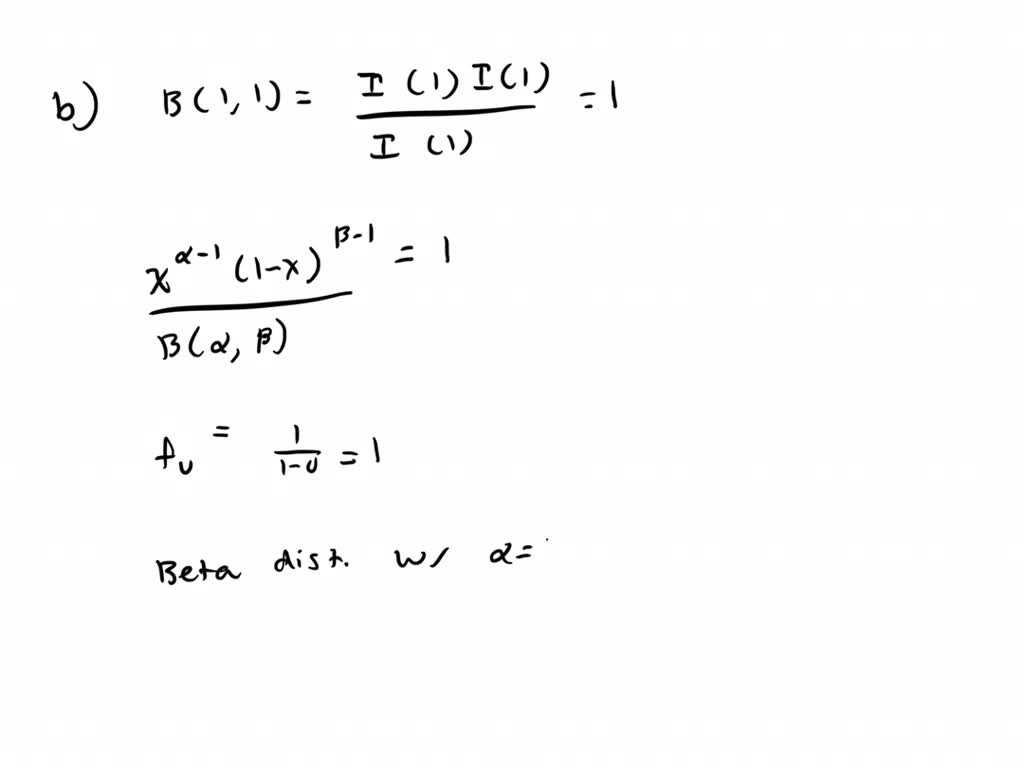 b) B(1,1) = I(1)I(1) / I(1) = 1
x^{α-1}(1-x)^{β-1} / B(α, β) = 1
f_U = 1/(1-0) = 1
Beta dist. w/ α=